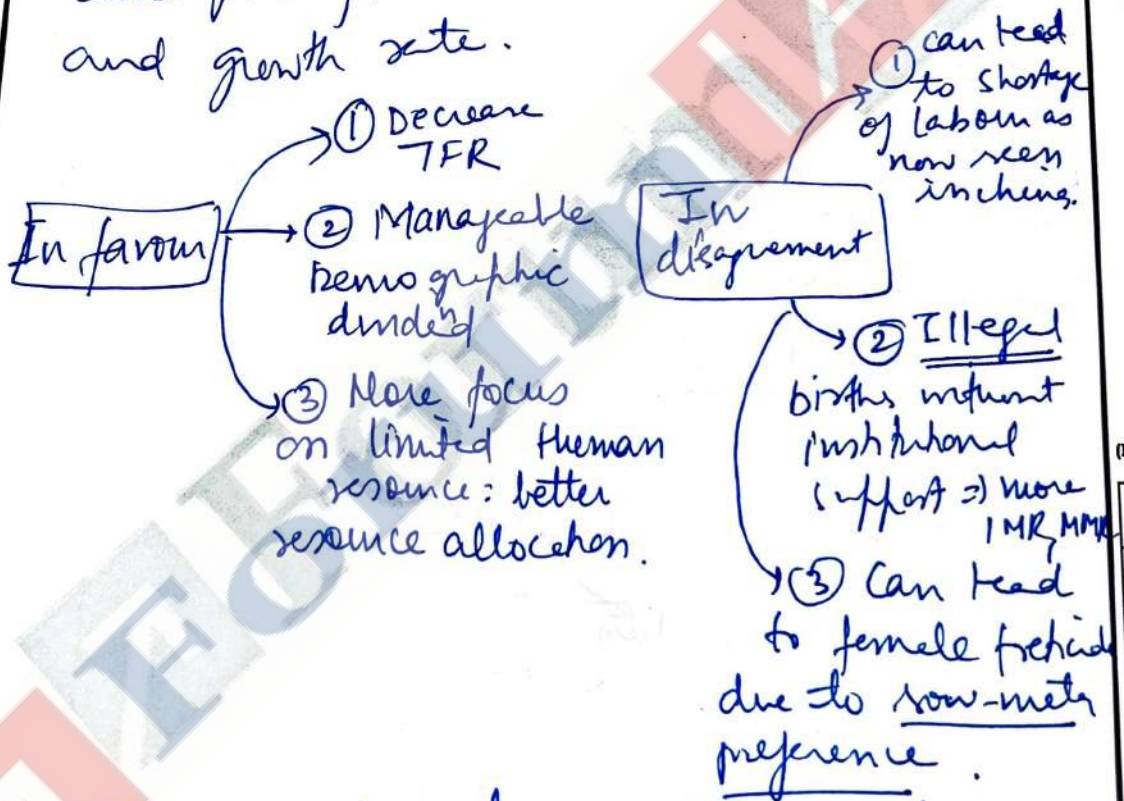 and growth rate.
In favour
① Decrease
TFR
② Manageable
Demographic
dividend
③ More focus
on limited Human
resource: better
resource allocation.
In
disagreement
① can lead
to shortage
of labour as
now seen
in china.
② Illegal
births without
institutional
support => more
IMR, MMR
③ Can lead
to female foeticide
due to son-meta
preference.
ForumIA